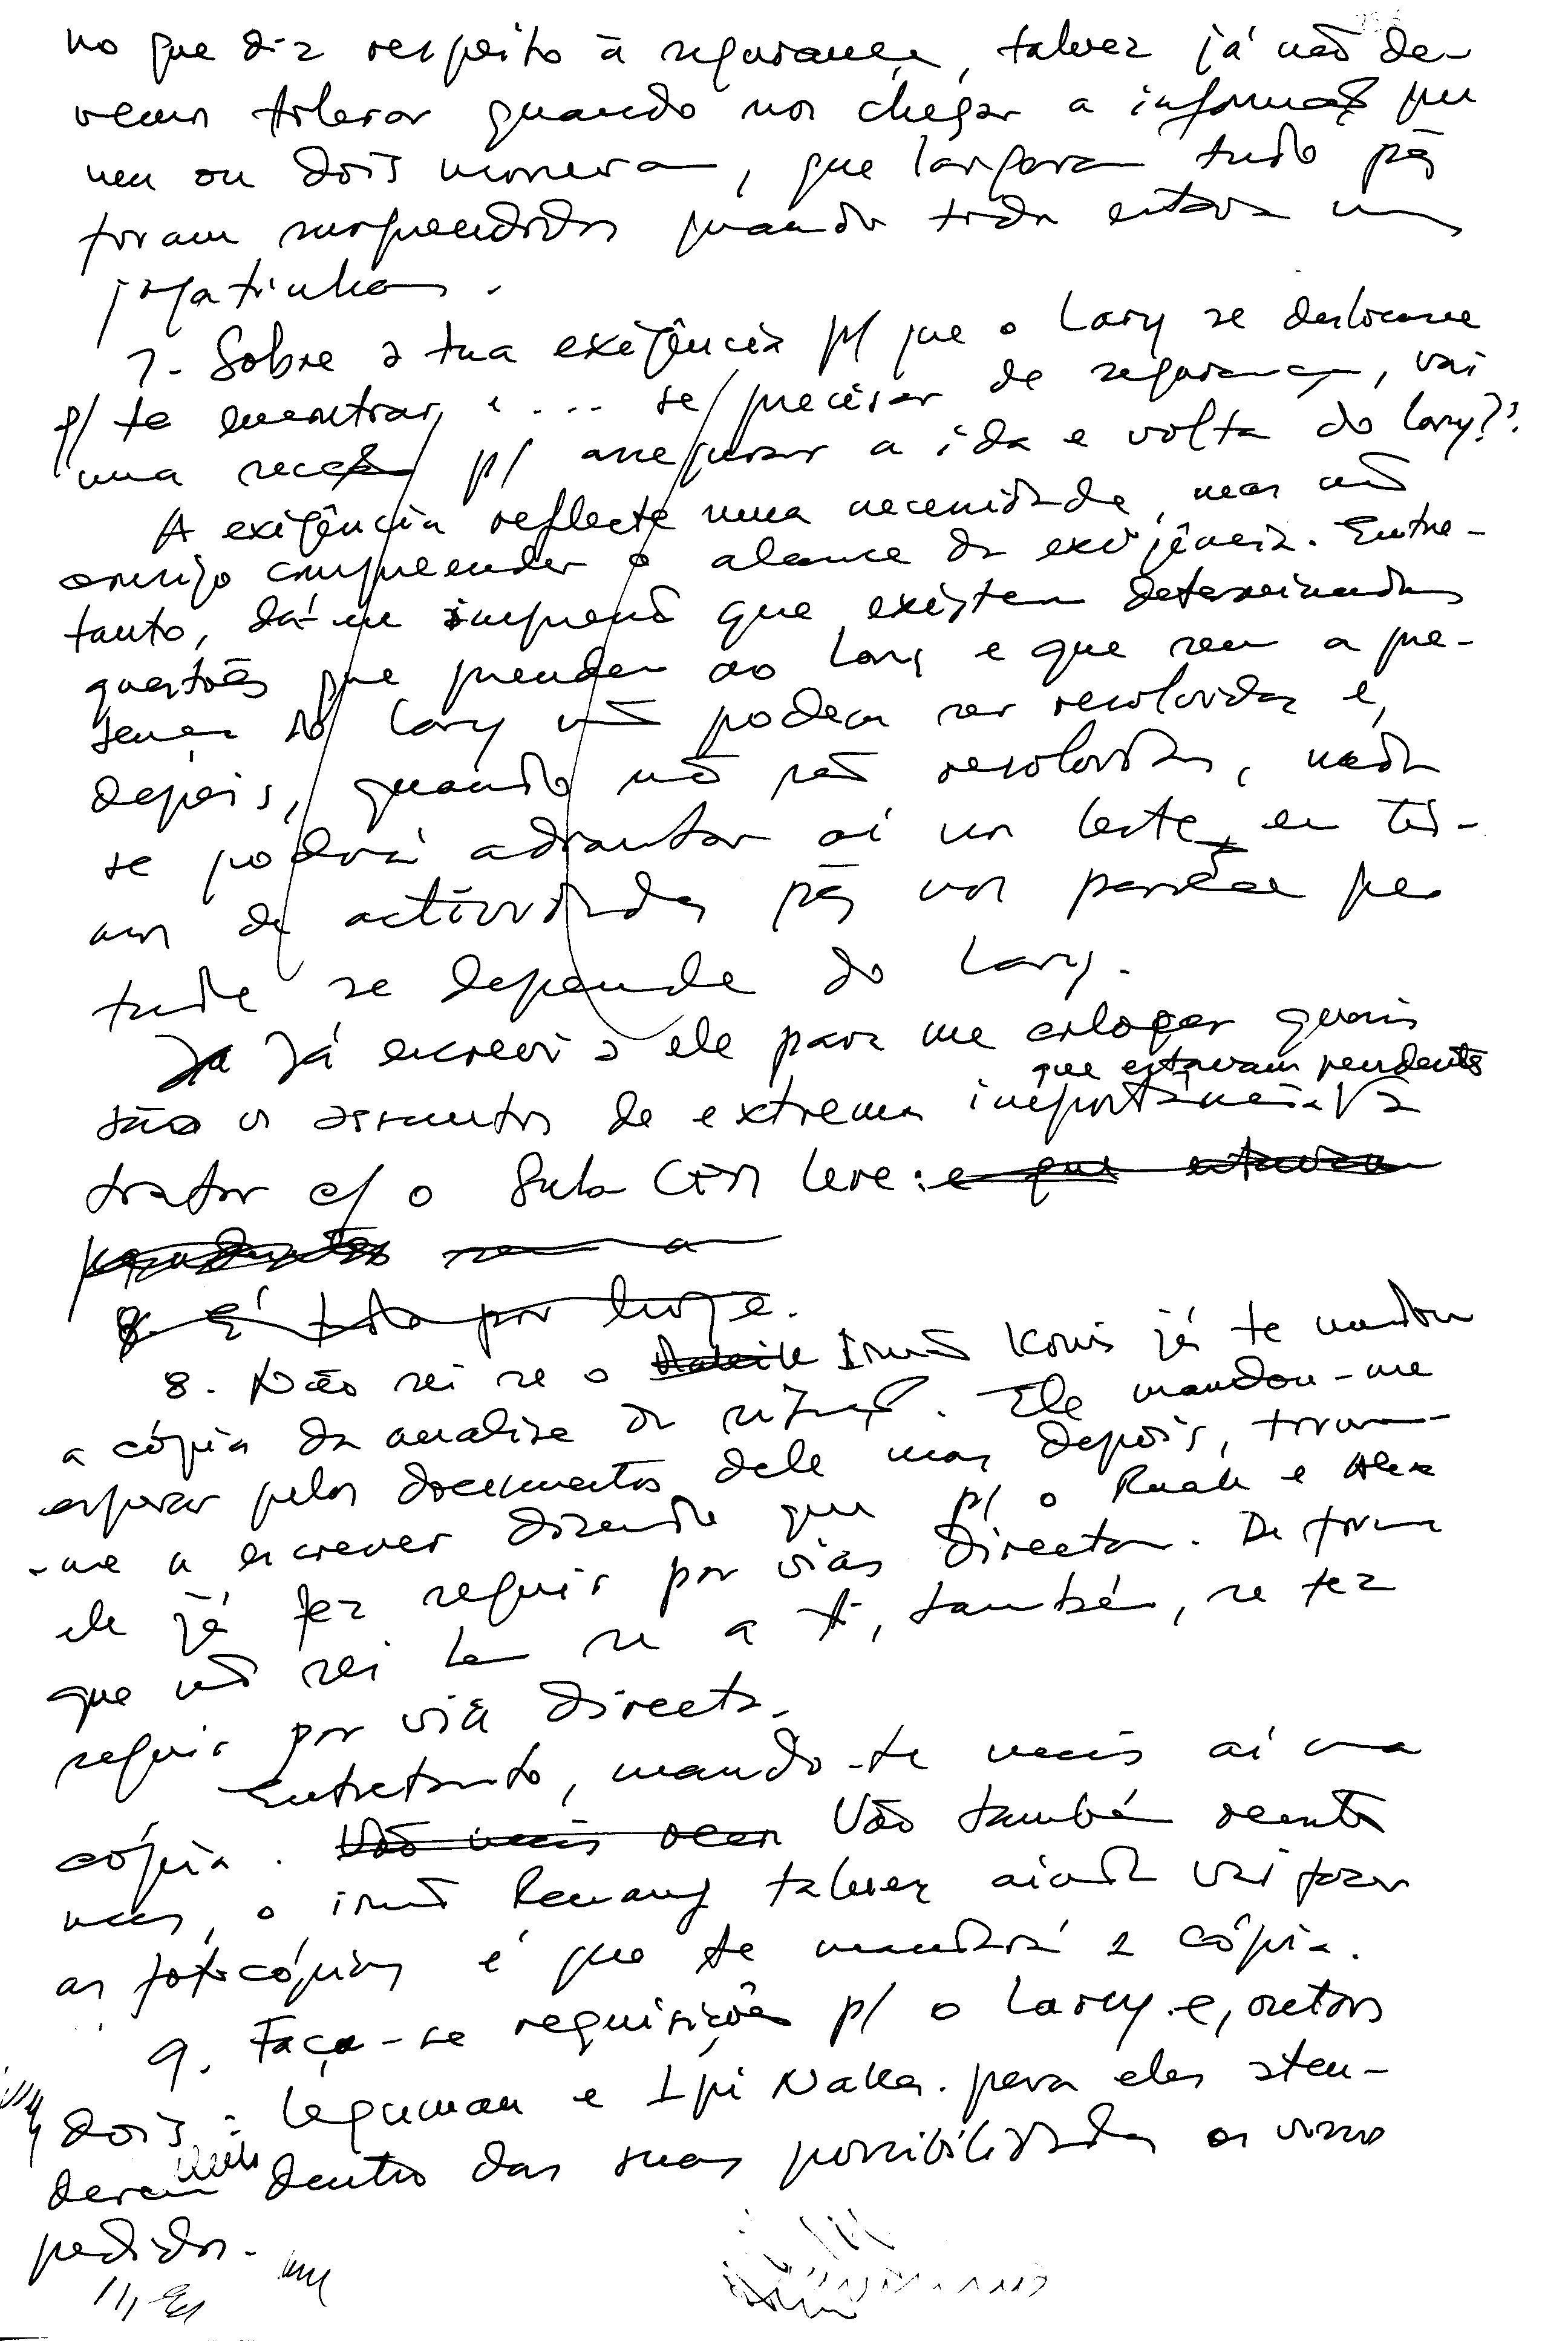 no que diz respeito à segurança, talvez já não de-
vemos tolerar quando nos chegar a informação que
um ou dois morreram, que largaram tudo pq
foram surpreendidos quando todos estavam nas
jogatinhas.
7- Sobre a tua exigência p/ que o Lary se deslocasse
p/ te encontrar, e .... se precisar de segurança, vai
uma secção p/ assegurar a ida e volta do Lary??
A exigência reflecte uma necessidade, mas não
consigo compreender o alcance da exigência. Entre-
tanto, dá-me impressão que existem determinadas
questões que prendem ao Lary e que sem a pre-
sença do Lary não podem ser resolvidas e,
depois, quando não são resolvidas, nada
se poderá adiantar aí no leste, em ter-
mos de actividades pq nos parece que
tudo se depende do Lary.
Já Já escrevi a ele para me colocar quais
que estavam pendentes
são os assuntos de extrema importância a
tratar c/ o Sub Leve: e que estavam
pendentes sem a
8. É tudo por hoje.
8. Não sei se o Irmão Konis já te mandou
a cópia da analise da situação. Ele mandou-me
esperar pelos documentos dele mas depois, tornou-
-me a escrever dizendo que p/ o Ruak e Alex
ele já fez seguir por vias directas. De forma
que não sei se a ti, também, se fez
seguir por via directa.
Entretanto, mando-te mais aí uma
cópia. Vão mais Vão também
mas, o irmão talvez ainda vai fazer
as fotocópias é que te mandará a cópia.
9. Faça-se requisições p/ o Lary e, outros
dois: Leguman e Ipi Naka. para eles aten-
derem dentro das suas possibilidades os vossos
pedidos.